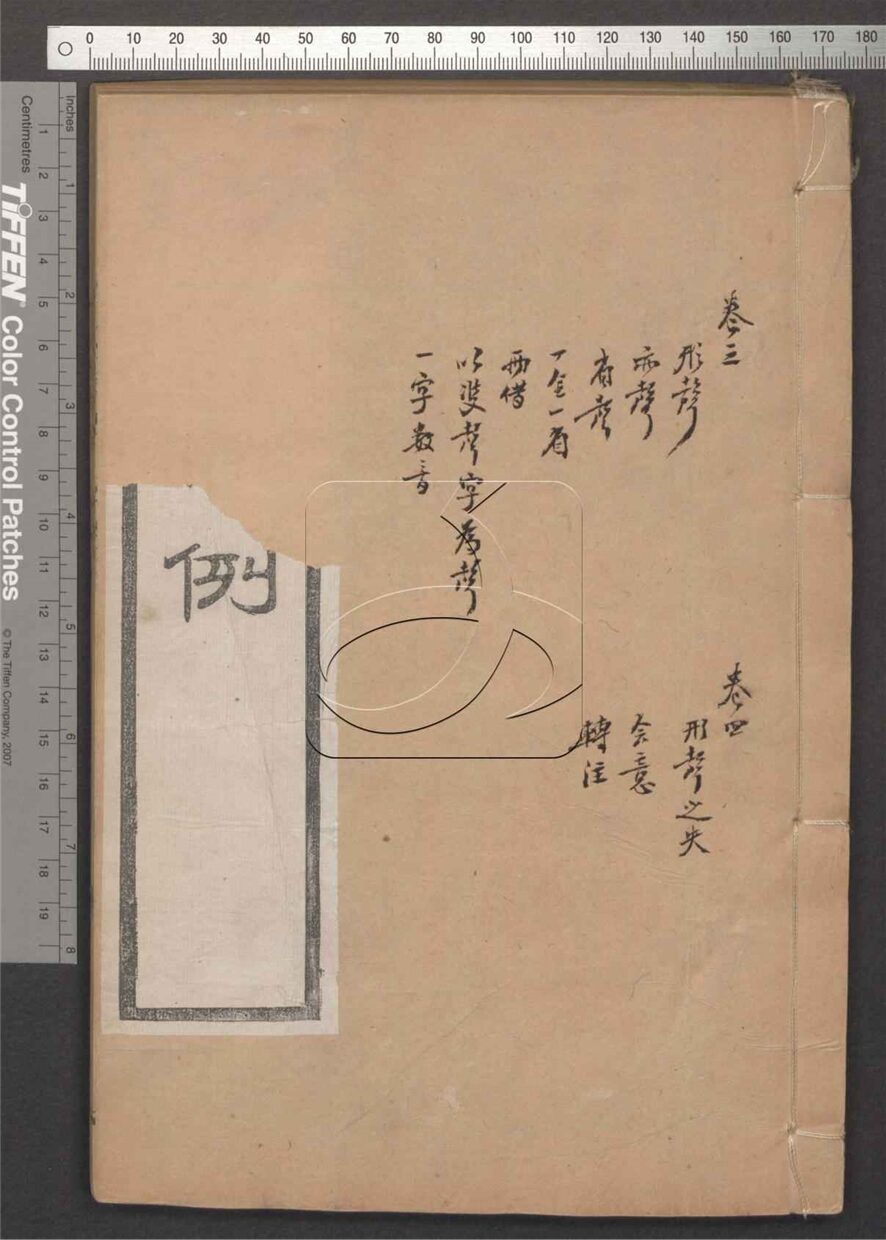 0 10 20 30 40 50 60 70 80 90 100 110 120 130 140 150 160 170 180
卷三
形聲
亦聲
省聲
一全一省
两借
以雙聲字為聲
一字數音
卷四
形聲之失
会意
轉注
例
Inches 1 2 3 4 5 6 7 8
Centimetres 1 2 3 4 5 6 7 8 9 10 11 12 13 14 15 16 17 18 19
TIFFEN® Color Control Patches
© The Tiffen Company, 2007